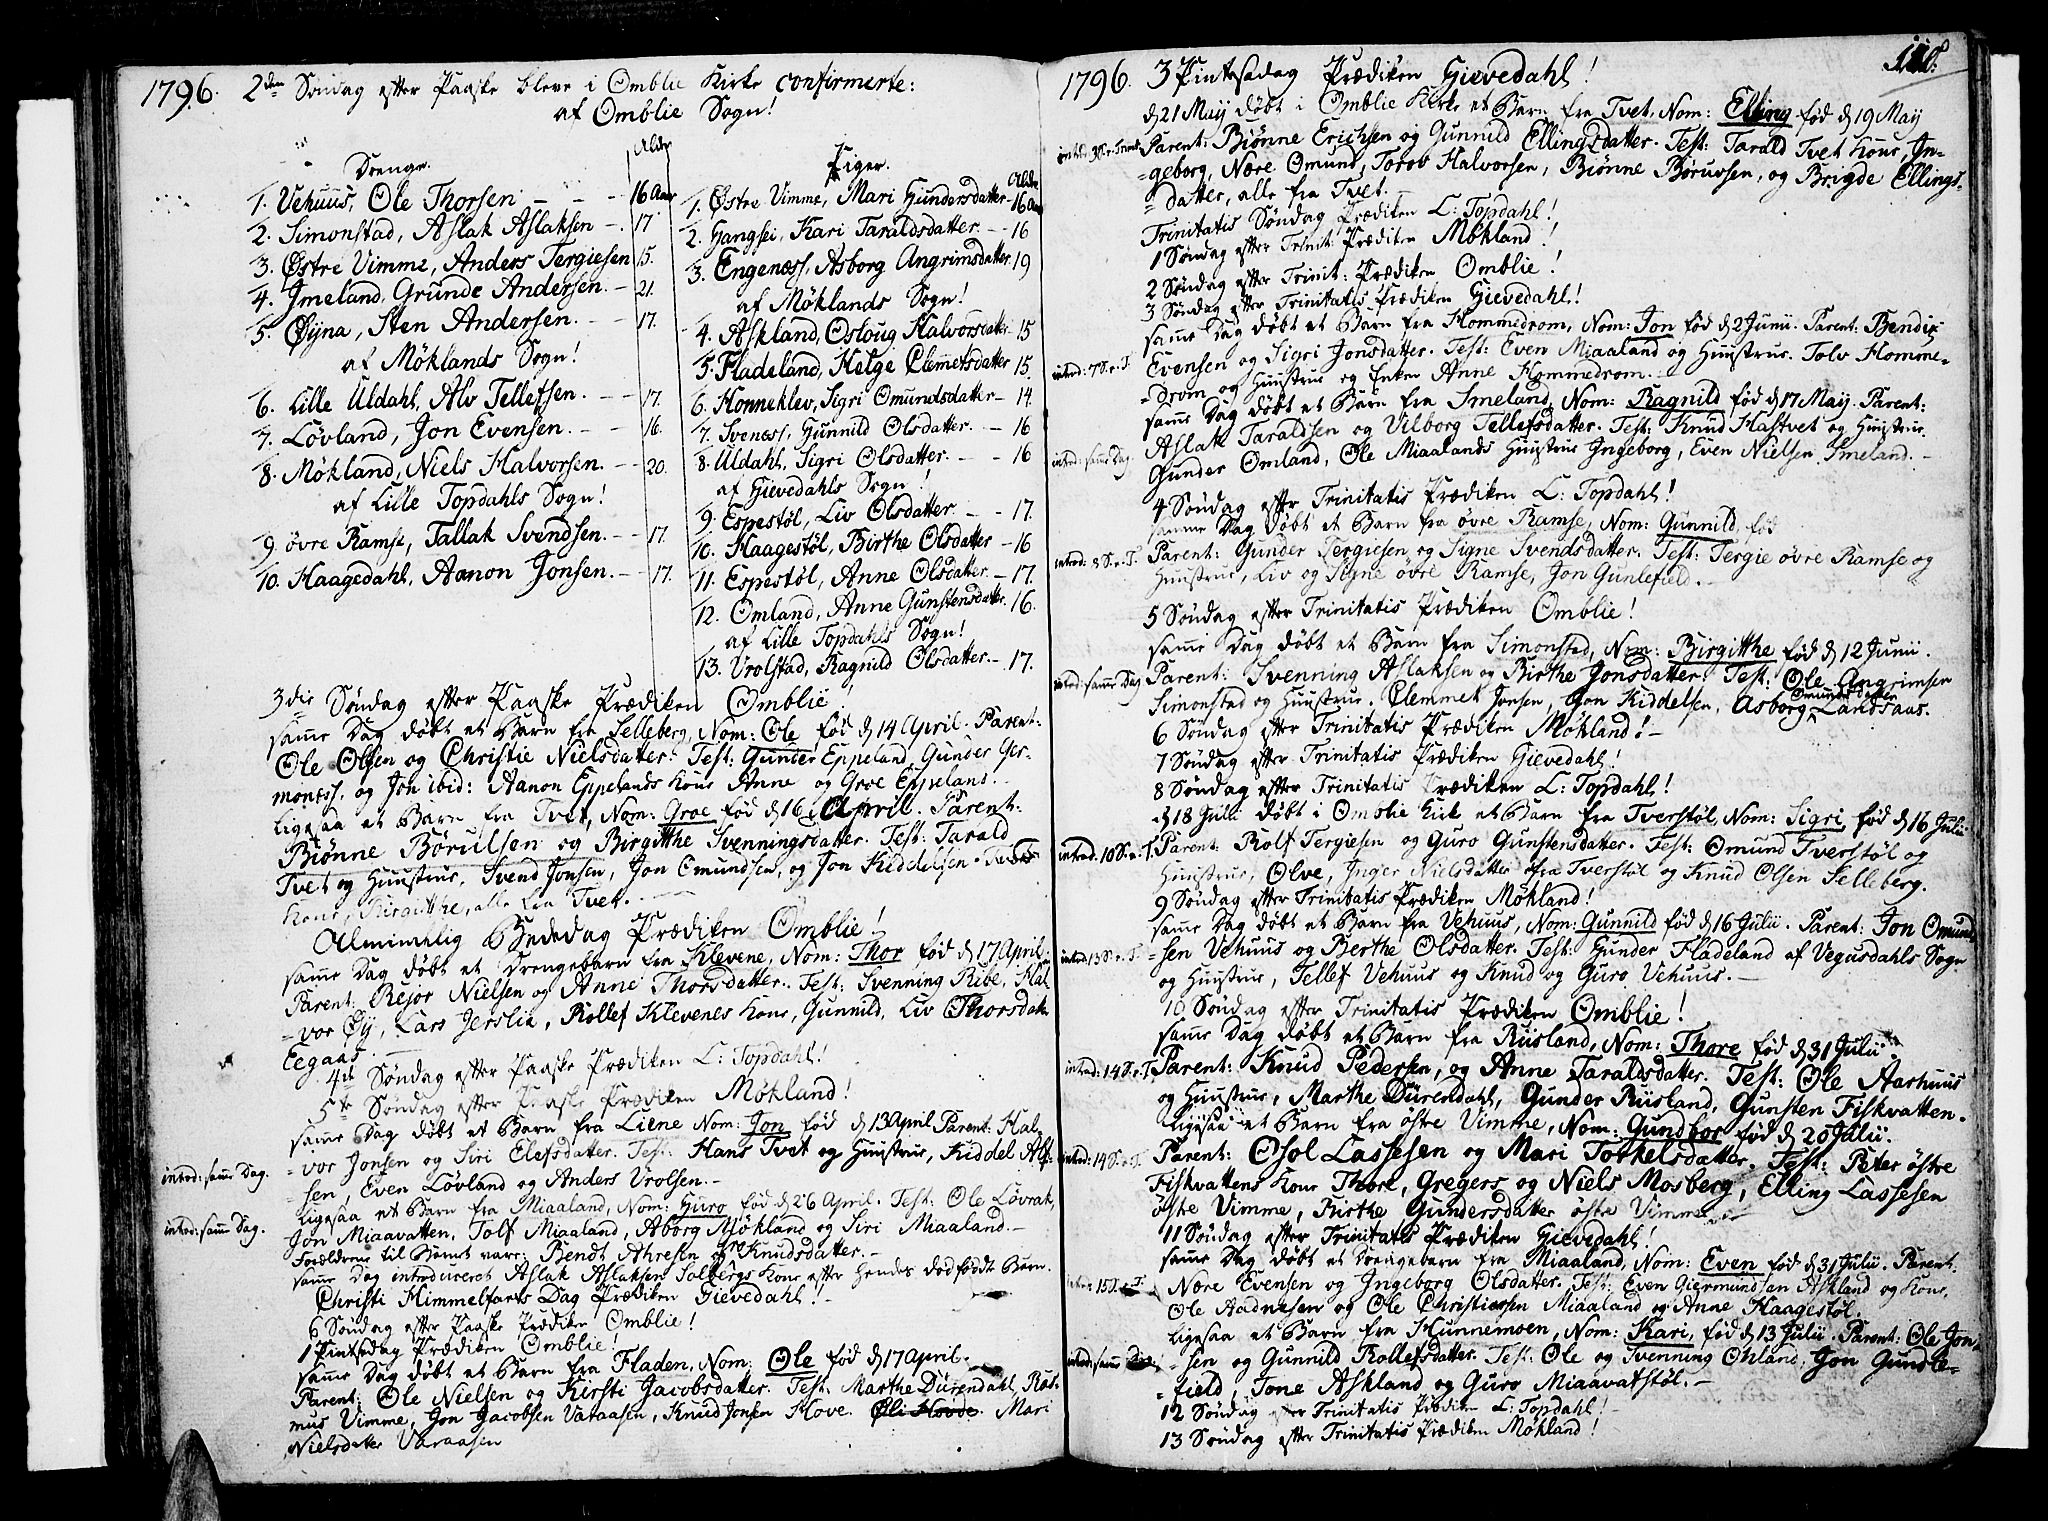 1796. 2den Søndag efter Paaske bleve i Omblie Kirke confirmerte:
af Omblie Sogn!
Drenge. Alder
1. Vehuus, Ole Thorsen - - - 16 Aar
2. Simonstad, Aslak Aslaksen - 17
3. Østre Vimme, Anders Tergiesen 15.
4. Jmeland, Grunde Andersen. - 21.
5. Øÿna, Sten Andersen. - - 17.
af Møklands Sogn!
6. Lille Uldahl, Alv Tellefsen. - - 17.
7. Løvland, Jon Evensen. - - 16.
8. Møkland, Niels Halvorsen. - - 20.
af Lille Topdahls Sogn!
9. øvre Ramse, Tallak Svendsen. - - 17.
10. Haagedahl, Aanon Jonsen. - 17.
Piger. Alder
1. Østre Vimme, Mari Gundersdatter - 16 Aar
2. Hangsei, Kari Taraldsdatter. - - 16
3. Engenæss, Asborg Angrimsdatter 19
af Møklands Sogn!
4. Askland, Osloug Halvorsdatter 15
5. Fladeland, Helge Clemetsdatter 15.
6. Honneklev, Sigri Omundsdatter - 14.
7. Svenæss, Gunnild Olsdatter. - 16
8. Uldahl, Sigri Olsdatter. - - 16
af Gievedahls Sogn!
9. Espestøl, Liv Olsdatter. - - 17.
10. Haagestøl, Birthe Olsdatter - 16
11. Espestøl, Anne Olsdatter. - 17.
12. Omland, Anne Gunstensdatter. 16.
af Lille Topdahls Sogn!
13. Vrolstad, Ragnild Olsdatter. - 17.
3die Søndag efter Paaske Prædiken Omblie!
samme Dag døbt et Barn fra Selleberg, Nom: Ole fød d 14 April. Parent:
Ole Olsen og Christie Nielsdatter. Test: Gunder Eppeland, Gunder Ger-
monæss. og Jon ibid: Aanon Eppelands Kone Anne og Groe Eppeland.
ligesaa et Barn fra Tvet, Nom: Groe fød d 16 April. Parent:
Biønne Børulsen og Birgitthe Svenningsdatter. Test: Tarald
Tvet og Huustrue, Svend Jonsen, Jon Omundsen, og Jon Kiddelsen
Kone, Birgitthe, alle fra Tvet. -
Almindelig Bededag Prædiken Omblie!
samme Dag døbt et Drengebarn fra Klevene, Nom: Thor fød d 17 April
Parent: Rejor Nielsen og Anne Thorsdatter. Test: Svenning Ribe, Hal-
-vor Øÿ, Lars Jerslie, Rollef Klevenes Kone, Gunnild, Liv Thorsdatter
Eegaas. -
4de Søndag efter Paaske Prædiken L: Topdahl!
5te Søndag efter Paaske Prædiken Møkland!
samme Dag døbt et Barn fra Liene Nom: Jon fød d 13 April Parent: Hal-
-vor Jonsen og Siri Elefsdatter. Test: Hans Tvet og Huustrue, Kiddel Alf-
introd: samme Dag.
-sen, Even Løvland og Anders Vrolsen. -
ligesaa et Barn fra Miaaland, Nom: Guro fød d 26 April. Test: Ole Løvrak,
introd: samme Dag.
Jon Miaavatten, Tolf Miaaland, Aborg Møkland og Siri Miaaland. -
Forældrene til Barnet vare: Bendt Ahresen og Knudsdatter. -
samme Dag introduceret Aslak Aslaksen Solbergs Kone efter hendes dødfødt Barn.
Christi Himmelfarts Dag Prædiken Gievedahl! -
6 Søndag efter Paaske Prædiken Omblie!
1 Pintsedag Prædiken Omblie!
samme Dag døbt et Barn fra Fladen, Nom: Ole fød d 17 April.
Parent: Ole Nielsen og Kersti Jacobsdatter. Test: Marthe Dürendahl, Ras-
mus Vimme, Jon Jacobsen Varaasen, Knud Jonsen Hove. Mari
Nielsdatter Varaasen
1796. 3 Pintsedag Prædiken Gievedahl!
d 21 May døbt i Omblie Kirke et Barn fra Tvet, Nom: Elling fød d 19 May
Parent: Biønne Erichsen og Gunnild Ellingsdatter. Test: Tarald Tvet Kone, In-
-geborg, Nære Omund, Torov Halvorsen, Biønne Børuvsen, og Brigde Ellings-
-datter, alle fra Tvet. -
Trinitatis Søndag Prædiken L: Topdahl!
1 Søndag efter Trinit: Prædiken Møkland!
2 Søndag efter Trinit: Prædiken Omblie!
3 Søndag efter Trinitatis Prædiken Gievedahl!
samme Dag døbt et Barn fra Hommedrom, Nom: Jon fød d 2 Junii. Parent: Bendix
introd: 7 S. e. T.
Evensen og Sigri Jonsdatter. Test: Even Miaaland og Huustrue. Tolv Homme-
-drom og Huustrue og Enken Anne Hommedrom. -
samme Dag døbt et Barn fra Smeland, Nom: Ragnild fød d 17 May. Parent:
Aslak Taraldsen og Vilborg Tellefsdatter. Test: Knud Hastvet og Huustrue,
introd: samme Dag.
Gunder Omland, Ole Miaalands Huustrue Ingeborg, Even Nielsen Smeland. -
4 Søndag efter Trinitatis Prædiken L: Topdahl!
samme Dag døbt et Barn fra øvre Ramse, Nom: Gunnild, fød
introd: 8 S. e. T.
Parent: Gunder Tergiesen og Signe Svendsdatter. Test: Tergie øvre Ramse og
Huustrue, Liv og Signe øvre Ramse, Jon Gunlefield. -
5 Søndag efter Trinitatis Prædiken Omblie!
samme Dag døbt et Barn fra Simonstad, Nom: Birgitthe fød d 12 Junii.
introd: samme Dag
Parent: Svenning Aslaksen og Birthe Jonsdatter. Test: Ole Angrimsen
Simonstad og Huustrue. Clemmet Jonsen, Jon Kiddelsen, Asborg Omundsdatter Landsaas.
6 Søndag efter Trinitatis Prædiken Møkland! -
7 Søndag efter Trinitatis Prædiken Gievedahl!
8 Søndag efter Trinitatis Prædiken L: Topdahl!
d 18 Julii døbt i Omblie Kirk et Barn fra Tverstøl, Nom: Sigri fød d 16 Julii
introd: 10 S. e. T.
Parent: Rolf Tergiesen og Guro Gunstensdatter. Test: Omund Tverstøl og
Huustrue, Olve, Inger Nielsdatter fra Tverstøl og Knud Olsen Selleberg.
9 Søndag efter Trinitatis Prædiken Møkland!
samme Dag døbt et Barn fra Vehuus, Nom: Gunnild fød d 16 Julii. Parent: Jon Omund-
introd: 13 S. e. T.
-sen Vehuus og Berthe Olsdatter. Test: Gunder Fladeland af Vegusdahls Sogn
og Huustrue, Tellef Vehuus og Knud og Guro Vehuus. -
10 Søndag efter Trinitatis Prædiken Omblie!
samme Dag døbt et Barn fra Rusland, Nom: Thore fød d 31 Julii.
introd: 14 S. e. T.
Parent: Knud Pedersen, og Anne Taraldsdatter. Test: Ole Aarhuus
og Huustrue, Marthe Dürendahl, Gunder Rusland, Gunsten Fiskvatten.
ligesaa et Barn fra østre Vimme, Nom: Gundbor fød d 20 Julii.
introd: 14 S. e. T.
Parent: Osol Lassesen og Mari Torkelsdatter. Test: Peter østre
Fiskvattens Kone Thore, Gregers og Niels Mosberg, Elling Lassesen
østre Vimme, Birthe Gundersdatter østre Vimme
11 Søndag efter Trinitatis Prædiken Gievedahl!
samme Dag døbt et Drengebarn fra Miaaland, Nom: Even fød d 31 Julii. Parent.
intro: 15 S. e. T.
Nære Evensen og Ingeborg Olsdatter. Test: Even Giermundsøn Askland og Kone,
Ole Aadnesen og Ole Christiansen Miaaland og Anne Haagestøl.
ligesaa et Barn fra Hunnemoen, Nom: Kari, fød d 13 Julii. Parent: Ole Jon-
introd: samme Dag.
-sen og Gunnild Rollefsdatter. Test: Ole og Svenning Ohland, Jon Gundle-
-field, Tone Askland og Guro Miaavatstøl. -
12 Søndag efter Trinitatis Prædiken L: Topdahl!
13 Søndag efter Trinitatis Prædiken Møkland!